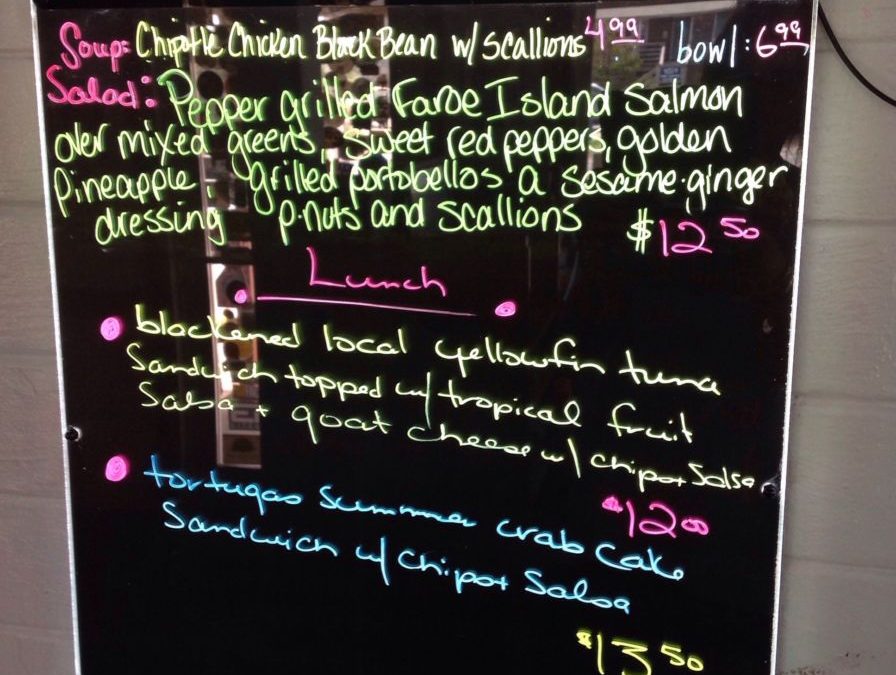 Soup: Chipotle Chicken Black Bean w/ scallions 4 99 bowl: 6 99
Salad: Pepper grilled Faroe Island Salmon
over mixed greens, sweet red peppers, golden
pineapple, grilled portobellos a sesame-ginger
dressing p-nuts and scallions $12 50
Lunch
blackened local yellowfin tuna
Sandwich topped w/ tropical fruit
Salsa + goat cheese w/ chips + Salsa
$12 00
tortugas Summer crab cake
Sandwich w/ chips + Salsa
$13 50